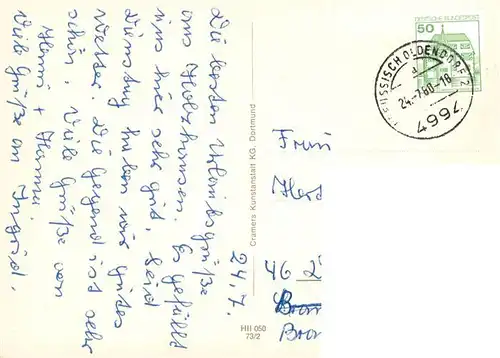 24.7.
Die besten Urlaubsgrüße
aus Holzhausen. Es gefällt
uns hier sehr gut, seid
Dienstag haben wir gutes
Wetter. Die Gegend ist sehr
schön. Viele Grüße von
Hanni + Hannu
Viele Grüße an Ingrid.
Cramers Kunstanstalt KG, Dortmund
HII 050
73/2
DEUTSCHE BUNDESPOST
50
PREUSSISCH OLDENDORF 2
a
24.-7.80-18
7664
Frau
46 2